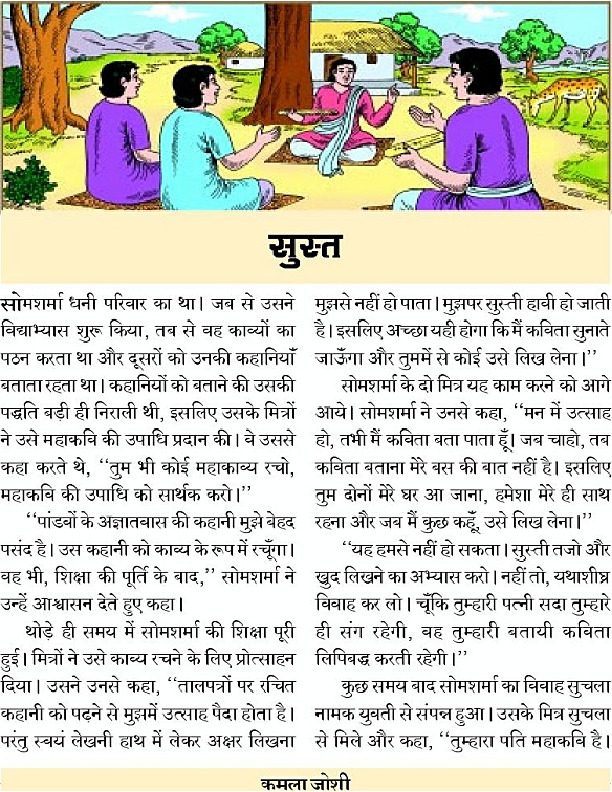 सुस्त
सोमशर्मा धनी परिवार का था। जब से उसने
विद्याभ्यास शुरू किया, तब से वह काव्यों का
पठन करता था और दूसरों को उनकी कहानियाँ
बताता रहता था। कहानियों को बताने की उसकी
पद्धति बड़ी ही निराली थी, इसलिए उसके मित्रों
ने उसे महाकवि की उपाधि प्रदान की। वे उससे
कहा करते थे, ‘‘तुम भी कोई महाकाव्य रचो,
महाकवि की उपाधि को सार्थक करो।’’
‘‘पांडवों के अज्ञातवास की कहानी मुझे बेहद
पसंद है। उस कहानी को काव्य के रूप में रचूँगा।
वह भी, शिक्षा की पूर्ति के बाद,’’ सोमशर्मा ने
उन्हें आश्वासन देते हुए कहा।
थोड़े ही समय में सोमशर्मा की शिक्षा पूरी
हुई। मित्रों ने उसे काव्य रचने के लिए प्रोत्साहन
दिया। उसने उनसे कहा, ‘‘तालपत्रों पर रचित
कहानी को पढ़ने से मुझमें उत्साह पैदा होता है।
परंतु स्वयं लेखनी हाथ में लेकर अक्षर लिखना
मुझसे नहीं हो पाता। मुझपर सुस्ती हावी हो जाती
है। इसलिए अच्छा यही होगा कि मैं कविता सुनाते
जाऊँगा और तुममें से कोई उसे लिख लेना।’’
सोमशर्मा के दो मित्र यह काम करने को आगे
आये। सोमशर्मा ने उनसे कहा, ‘‘मन में उत्साह
हो, तभी मैं कविता बता पाता हूँ। जब चाहो, तब
कविता बताना मेरे बस की बात नहीं है। इसलिए
तुम दोनों मेरे घर आ जाना, हमेशा मेरे ही साथ
रहना और जब मैं कुछ कहूँ, उसे लिख लेना।’’
‘‘यह हमसे नहीं हो सकता। सुस्ती तजो और
खुद लिखने का अभ्यास करो। नहीं तो, यथाशीघ्र
विवाह कर लो। चूँकि तुम्हारी पत्नी सदा तुम्हारे
ही संग रहेगी, वह तुम्हारी बतायी कविता
लिपिबद्ध करती रहेगी।’’
कुछ समय बाद सोमशर्मा का विवाह सुचला
नामक युवती से संपन्न हुआ। उसके मित्र सुचला
से मिले और कहा, ‘‘तुम्हारा पति महाकवि है।
कमला जोशी